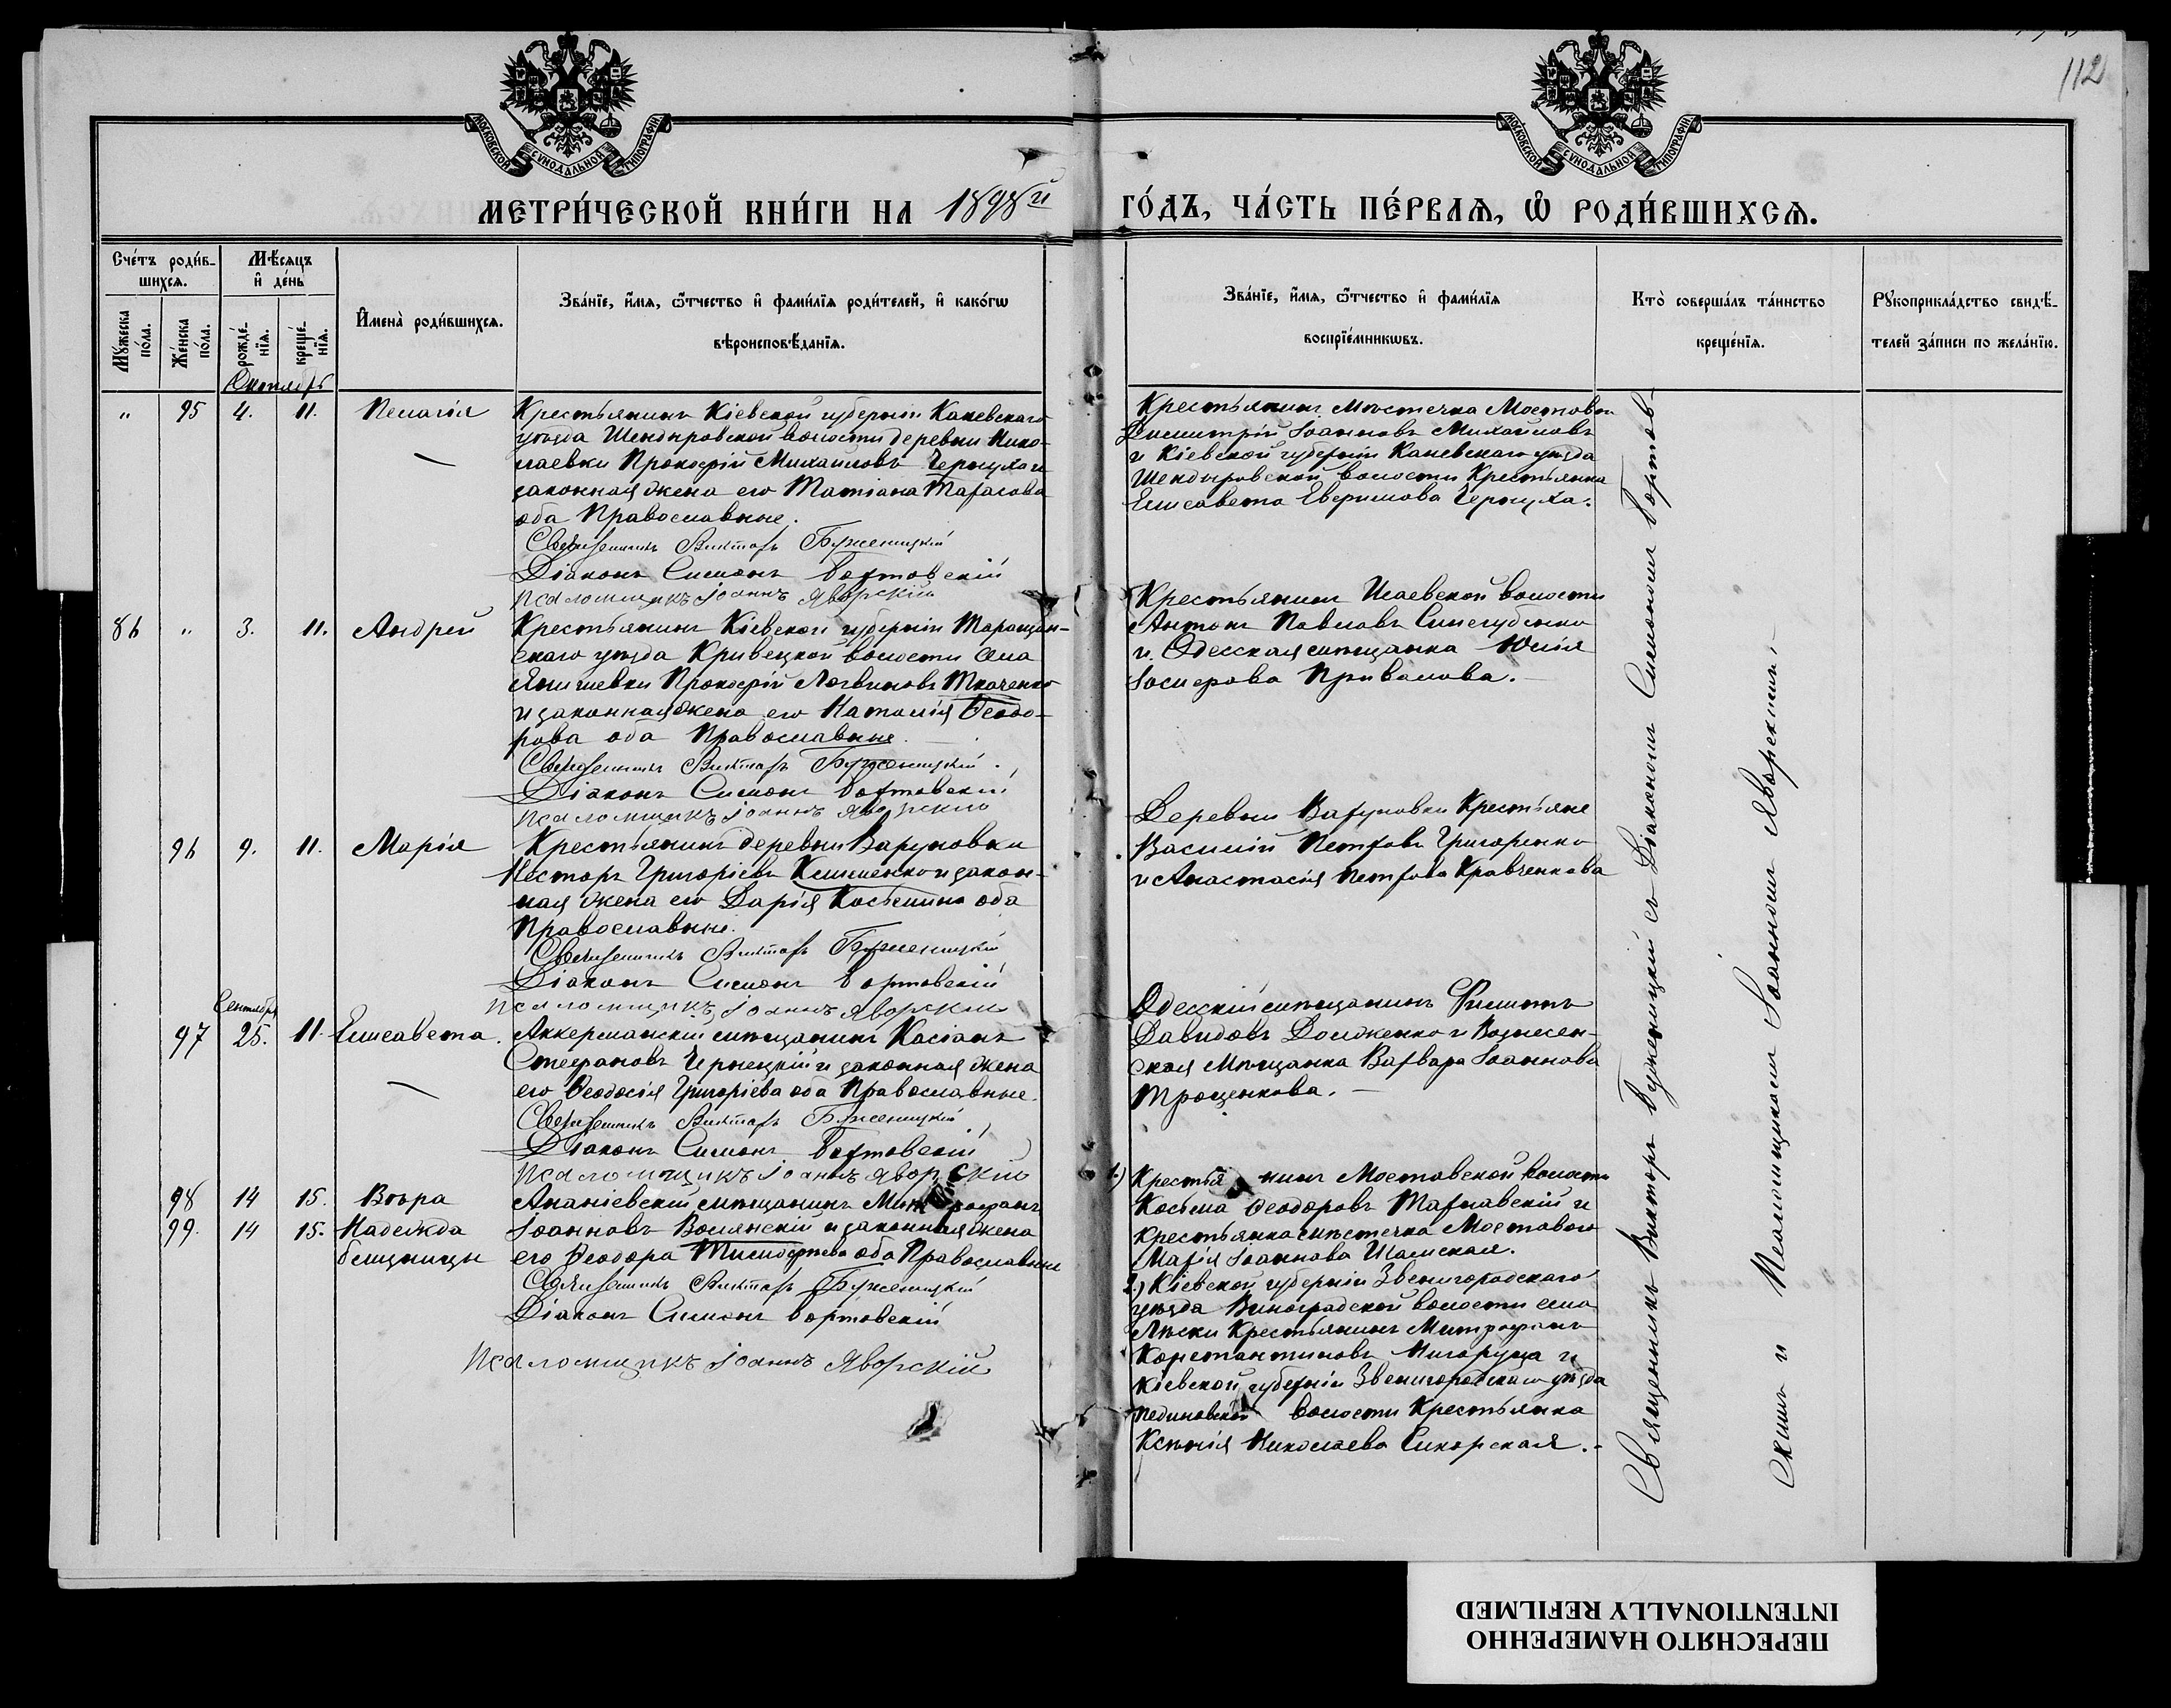 112
МОСКОВСКОЙ СѴНОДАЛЬНОЙ ТИПОГРАФІИ
МОСКОВСКОЙ СѴНОДАЛЬНОЙ ТИПОГРАФІИ
МЕТРИ́ЧЕСКОЙ КНИ́ГИ НА 1898й ГО́ДЪ, ЧА́СТЬ ПЕ́РВАЯ, Ѽ РОДИ́ВШИХСЯ.
Сче́тъ роди́в-
шихся.
Мѣ́сяцъ
и҆ де́нь
Мꙋ́жеска по́ла.
Же́нска по́ла.
рожде́-нїя.
креще́-нїя.
И҆мена̀ роди́вшихся.
Зва́нїе, и҆́мя, ѻ҆́тчество и҆ фами́лїя роди́телей, и҆ како́гѡ
вѣроисповѣ́данїя.
Зва́нїе, и҆́мя, ѻ҆́тчество и҆ фами́лїя
воспрїе́мникѡвъ.
Кто̀ соверша́лъ та́инство
креще́нїя.
Рꙋкоприкла́дство свидѣ́-
телей за́писи по жела́нїю.
Октябрь
" 95 4. 11. Пелагія
Крестьянинъ Кіевской губерніи Каневскаго
уѣзда Шендыровской волости деревни Нико-
лаевки Прокофій Михаиловъ Чернуха и
законная жена его Татіана Тарасова
оба Православные.
Священникъ Викторъ Бужениицкій
Діаконъ Симонъ Бортовскій
Псаломщикъ Іоаннъ Яворскій
Крестьянинъ мѣстечка Мостовои
Димитрій Іоанновъ Михайловъ
и Кіевской губерніи Каневскаго уѣзда
Шендыровской волости Крестьянка
Елисавета Евфимова Чернуха.
86 " 3. 11. Андрей
Крестьянинъ Кіевской губерніи Таращан-
скаго уѣзда Кривецкой волости села
Прокофій Логвиновъ Ткаченко
и законная жена его Наталія Ѳеодо-
рова оба Православные.
Священникъ Викторъ Бужениицкій.
Діаконъ Симонъ Бортовскій
Псаломщикъ Іоаннъ Яворскій
Крестьянинъ Исаевской волости
Антонъ Павловъ Синегубенко
и Одесская мѣщанка Юлія
Іосифова Привалова.
96 9. 11. Марія
Крестьянинъ деревни Варуновки
Несторъ Григоріевъ Клименко и закон-
ная жена его Дарія Косьмина оба
Православные.
Священникъ Викторъ Бужениицкій
Діаконъ Симонъ Бортовскій
Псаломщикъ Іоаннъ Яворскій
Деревни Варуновки Крестьяне
Василій Петровъ Григоренко
и Анастасія Петрова Кравченкова
Сентябрь
97 25. 11. Елисавета.
Аккерманскій мѣщанинъ Касіанъ
Стефановъ Чернецкій и законная жена
его Ѳеодосія Григоріева оба Православные.
Священникъ Викторъ Бужениицкій
Діаконъ Симонъ Бортовскій
Псаломщикъ Іоаннъ Яворскій
Одесскій мѣщанинъ Филиппъ
Давидовъ Долженко и Вознесен-
ская Мѣщанка Варвара Іоаннова
Троценкова.
98 14 15. Вѣра
99. 14 15. Надежда
близницы
Ананіевскій мѣщанинъ Митрофанъ
Іоанновъ Волянскій и законная жена
его Ѳеодора Тимоѳеева оба Православные
Священникъ Викторъ Бужениицкій
Діаконъ Симонъ Бортовскій
Псаломщикъ Іоаннъ Яворскій
1.) Крестьянинъ Мостовской волости
Косьма Ѳеодоровъ Тарнавскій и
крестьянка мѣстечка Мостового
Марія Іоаннова
2.) Кіевской губерніи Звенигородскаго
уѣзда Виноградской волости села
Лѣски Крестьянинъ Митрофанъ
Константиновъ и
Кіевской губерніи Звенигородскаго уѣзда
волости Крестьянка
Ксенія Николаева Сикорская.
Священникъ Викторъ Бужениицкій съ Діакономъ Симономъ Бортов-
скимъ и Псаломщикомъ Іоанномъ Яворскимъ.
ПЕРЕСНЯТО НАМЕРЕННО
INTENTIONALLY REFILMED